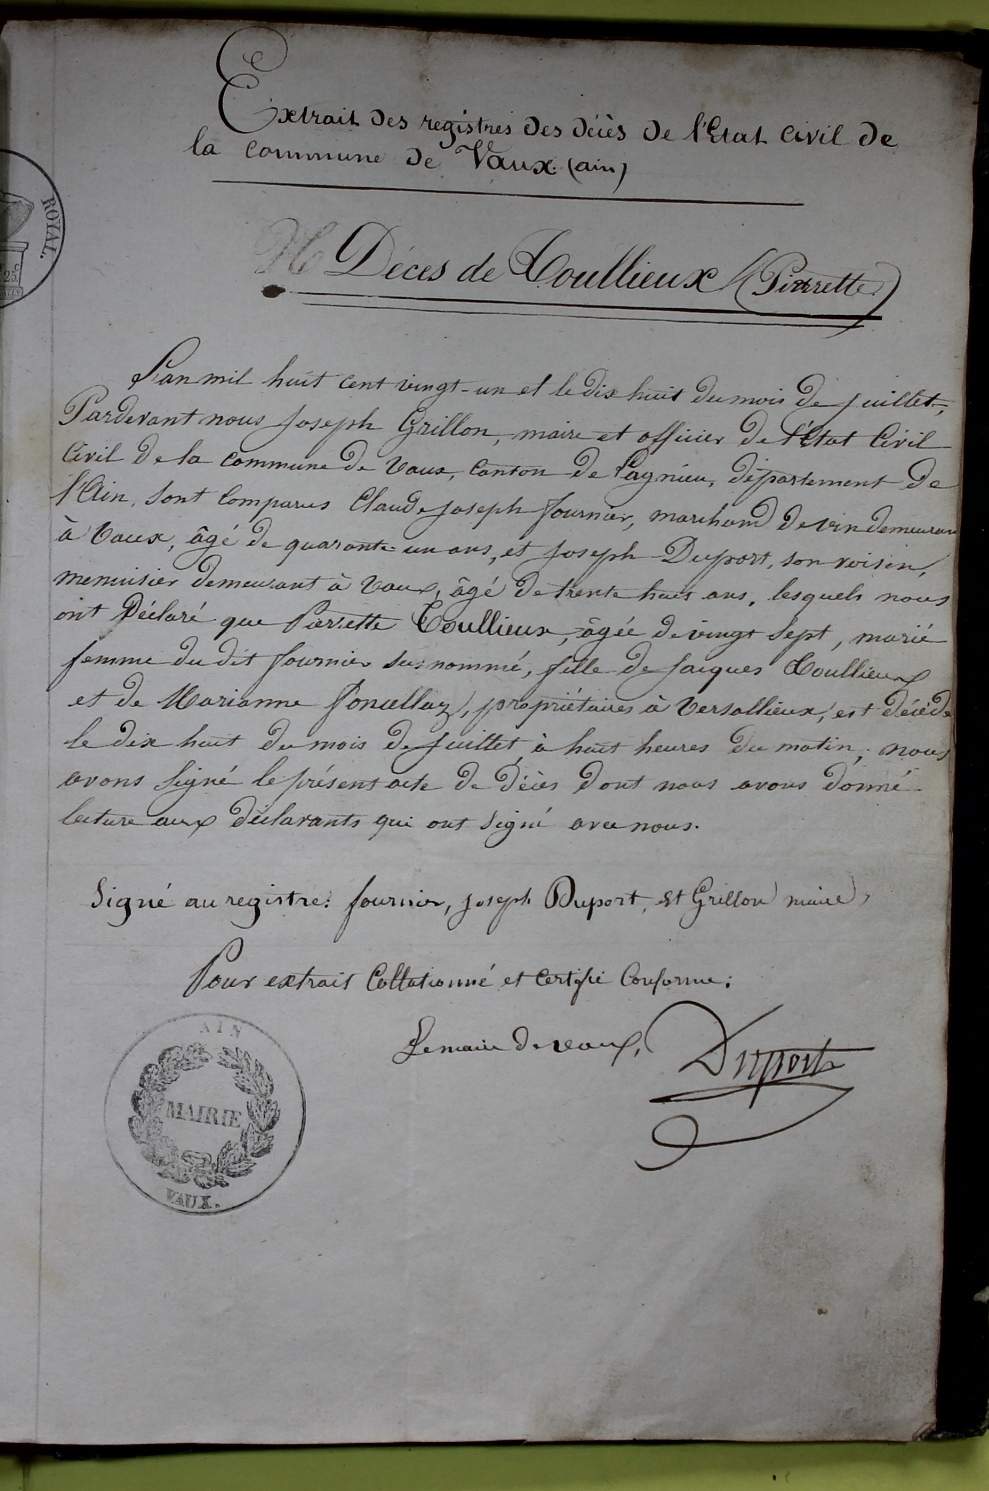 Extrait des registres des décès de l'Etat civil de
la commune de Vaux (ain)
ROYAL.
25c
Décès de Coullieux (Pierrette)
L'an mil huit cent vingt-un et le dix huit du mois de juillet,
Pardevant nous Joseph Grillon, maire et officier de l'Etat Civil
Civil de la commune de Vaux, canton de Lagnieu, département de
l'Ain, sont comparus Claude joseph fournier, marchand de vin demeurant
à Vaux, âgé de quarante un ans, et joseph Duport, son voisin,
menuisier demeurant à Vaux, âgé de trente huit ans, lesquels nous
ont Déclaré que Pierrette Coullieux, âgée de vingt sept, marié
femme du dit fournier susnommé, fille de jacques Coullieux
et de Marianne Poncellaz, propriétaires à Versallieux, est décédé
le dix huit du mois de juillet à huit heures du matin; nous
avons signé le présent acte de décès dont nous avons donné
lecture aux déclarants qui ont signé avec nous.
Signé au registre: fournier, joseph Duport, et Grillon maire,
Pour extrait Collationné et certifié Conforme:
Le maire de vaux,
Duport
AIN
MAIRIE
VAUX.